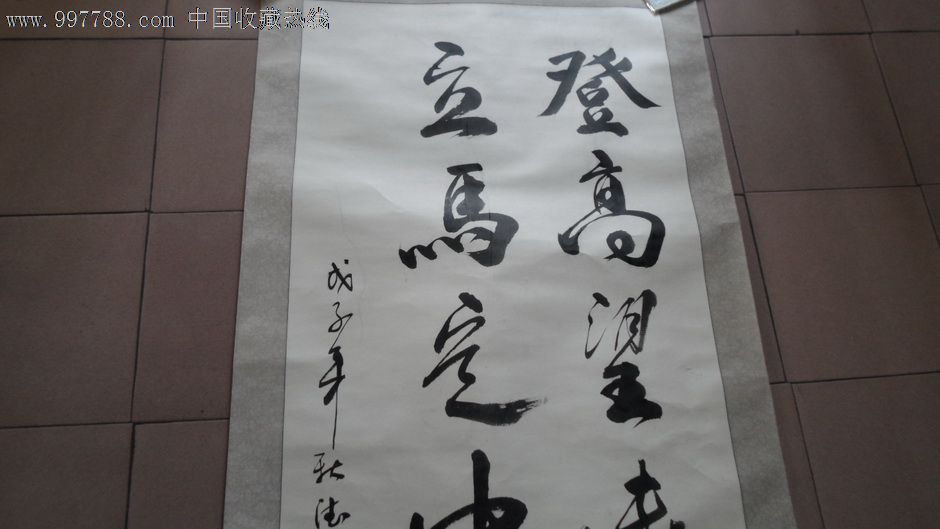 www.997788.com 中国收藏热线
登高望
立馬定
戊子年秋德